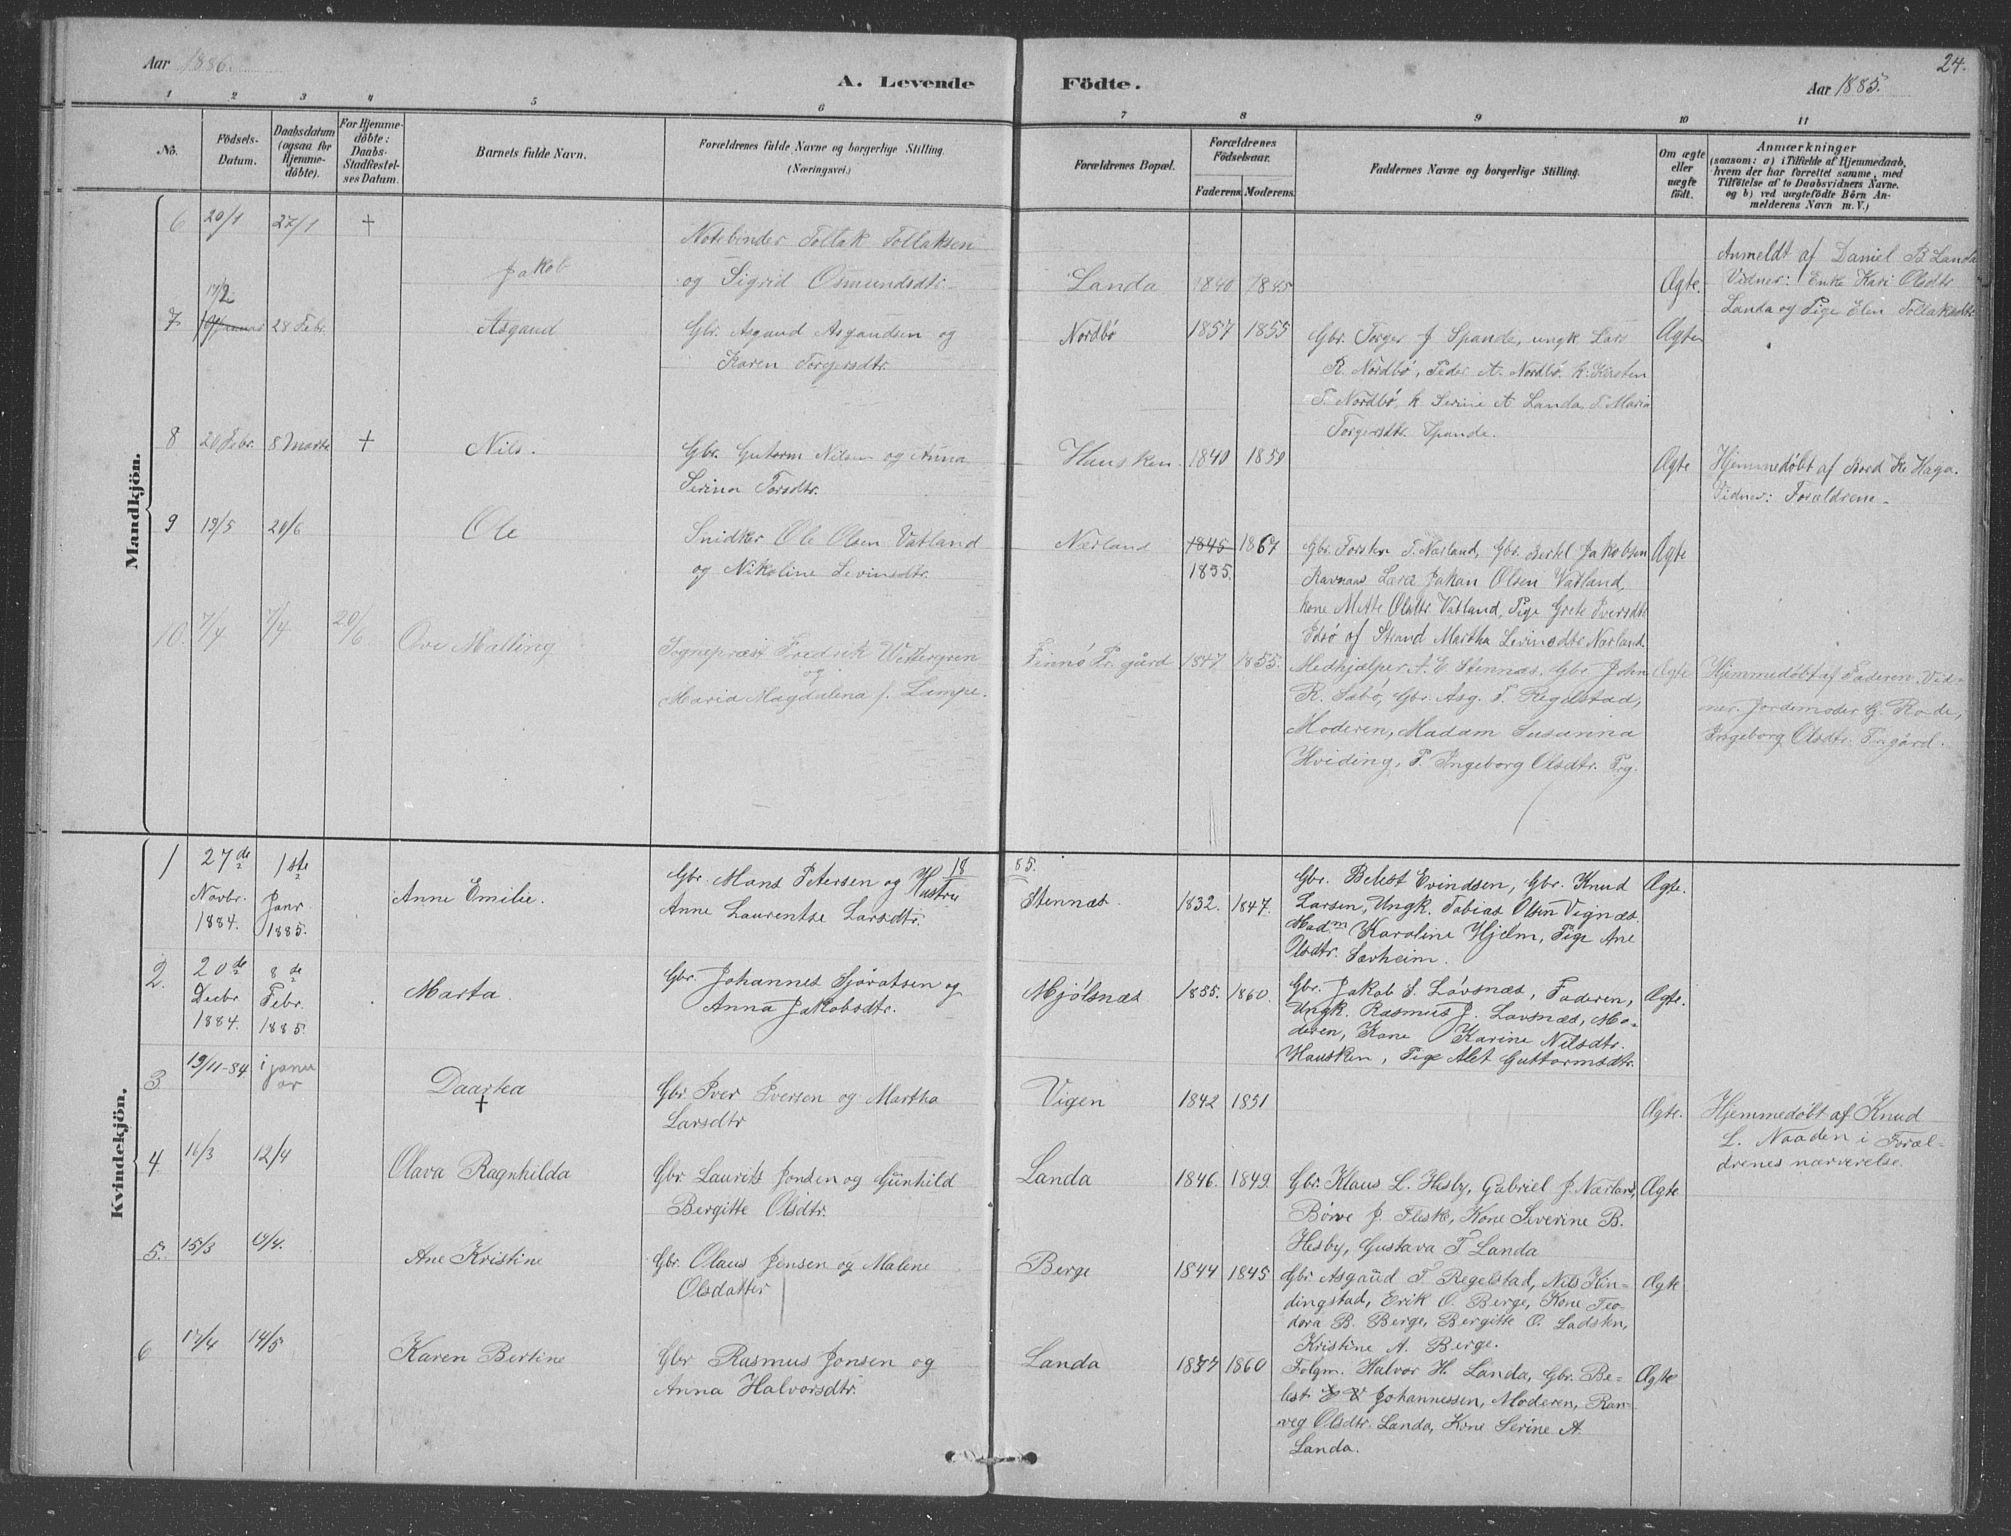 Aar 1886.
A. Levende Födte.
Aar 1885.
24.
1 2 3 4 5 6 7 8 9 10 11
No.
Födsels-Datum.
Daabsdatum (ogsaa for Hjemme-döbte).
For Hjemme-döbte: Daabs-Stadfæstel-ses Datum.
Barnets fulde Navn.
Forældrenes fulde Navne og borgerlige Stilling. (Næringsvei.)
Forældrenes Bopæl.
Forældrenes Födselsaar.
Faderens. Moderens.
Faddernes Navne og borgerlige Stilling.
Om ægte eller uægte födt.
Anmærkninger
(saasom: a) i Tilfælde af Hjemmedaab,
hvem der har forrettet samme, med
Tilföielse af to Daabsvidners Navne.
og b) ved uægtefödte Börn An-
melderens Navn m. V.)
Mandkjön.
6 20/1 27/1 + Jakob
Notebinder Tollak Tollaksen
og Sigrid Osmundsdtr.
Landa 1840 1845 Ægte.
Anmeldt af Daniel B Landa
Vidner: Enke Kari Olsdtr
Landa og Pige Elen Tollaksdtr
7 17/2 28 Febr. Asgaud
Gbr. Asgaud Asgaudsen og
Karen Torgersdtr.
Nordbø 1857 1855
Gbr. Torger J Spande, ungk Lars
R. Nordbø, Peder A. Nordbø. k. Kirsten
T. Nordbø, k Serine A Landa, P. Maria
Torgersdtr. Spande.
Ægte
8 20 Febr. 8 Marts + Nils.
Gbr. Gutorm Nilsen og Anna
Serina Torsdtr.
Hausken 1840 1850 Ægte
Hjemmedøbt af Bord K. Haga.
Vidner: Forældrene.
9 19/5 20/6 Ole
Snidker Ole Olsen Vatland
og Nikoline Levinsdtr.
Nærland 1845 1867
1855.
Gbr. Torsten T. Nærland, Gbr. Bertel Jakobsen
Ravnaas Lærer Jakan Olsen Vatland,
kone Mette Olsdtr Vatland, Pige Grete Iversdtr
Edsø af Strand Martha Levinsdtr Nærland.
Ægte
10. 7/4 7/4 20/6 Ove Malling
Sognepræst Fredrik Wettergren
og
Maria Magdalena f. Lampe.
Finnø Pr. gård 1847 1855.
Medhjælper A. E. Stennæs. Gbr John
R. Sæbø, Gbr. Asg. T. Regelstad,
Moderen, Madam Susanna
Hviding, P. Ingeborg Olsdtr. Prg.
Ægte
Hjemmedøbt af Faderen. Vid-
ner. Jordemoder G. Rode,
Ingeborg Olsdtr. Prgård.
Kvindekjön.
1885.
1 27de Novbr. 1884. 1ste Janr 1885. Anne Emilie.
Gbr. Mons Petersen og Hustru
Anne Laurentse Larsdtr.
Stennæs. 1832. 1847.
Gbr. Belest Evindsen, Gbr. Knud
Larsen, Ungk. Tobias Olsen Vignæs.
Madm Karoline Hjelm, Pige Ane
Olsdtr. Sørheim.
Ægte.
2. 20de Decbr 1884. 8de Febr. 1885. Marta.
Gbr. Johannes Sjøvatsen og
Anna Jakobsdtr.
Mjølsnæs. 1855. 1860.
Gbr. Jakob S. Løvsnæs, Faderen,
Ungk. Rasmus J. Løvsnæs, Mo-
deren, Kone Karine Nilsdtr.
Hausken, Pige Alet Guttormsdtr.
Ægte.
3 19/11-84 i januar Daartea +
Gbr. Iver Iversen og Martha
Larsdtr
Vigen 1842 1851 Ægte.
Hjemmedøbt af Knud
L. Naaden i Foræl-
drenes nærverelse.
4 16/3 12/4 Olava Ragnhilda
Gbr Laurits Jonsen og Gunhild
Bergitte Olsdtr.
Landa 1846. 1849.
Gbr. Klaus L. Hesby, Gabriel J. Nærland,
Børve J. Fleske, Kone Severine B.
Hesby, Gustava T Landa
Ægte
5. 15/3 Ane Kristine
Gbr. Olaus Jensen og Malene
Olsdatter
Berge 1844 1845
Gbr Asgaud T. Regelstad, Nils Kin-
dingstad, Erik O. Berge, Kone Teo-
dora B. Berge, Bergitte O. Ladstein,
Kristine A. Berge.
Ægte
6 17/4 14/5 Karen Bertine
Gbr Rasmus Jonsen og
Anna Halvorsdtr.
Landa 1857 1860
Folgm. Halvor H. Landa, Gbr. Be-
lest Johannessen, Moderen, Ran-
veg Olsdtr. Landa, Kone Serine A.
Landa.
Ægte